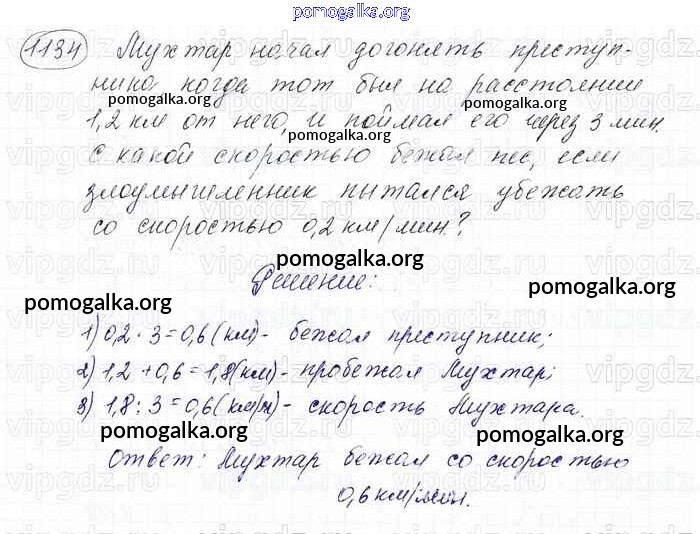 pomogalka.org
1134 Мухтар начал догонять преступ-
ника когда тот был на расстоянии
pomogalka.org pomogalka.org
1,2 км от него, и поймал его через 3 мин.
pomogalka.org
С какой скоростью бежал пес, если
злоумышленник пытался убежать
со скоростью 0,2 км/мин.?
pomogalka.org pomogalka.org
Решение:
pomogalka.org
1) 0,2 · 3 = 0,6 (км) - бежал преступник;
2) 1,2 + 0,6 = 1,8 (км) - пробежал Мухтар;
3) 1,8 : 3 = 0,6 (км/м) - скорость Мухтара.
pomogalka.org pomogalka.org
Ответ: Мухтар бежал со скоростью
0,6 км/мин.
vipgdz.ru